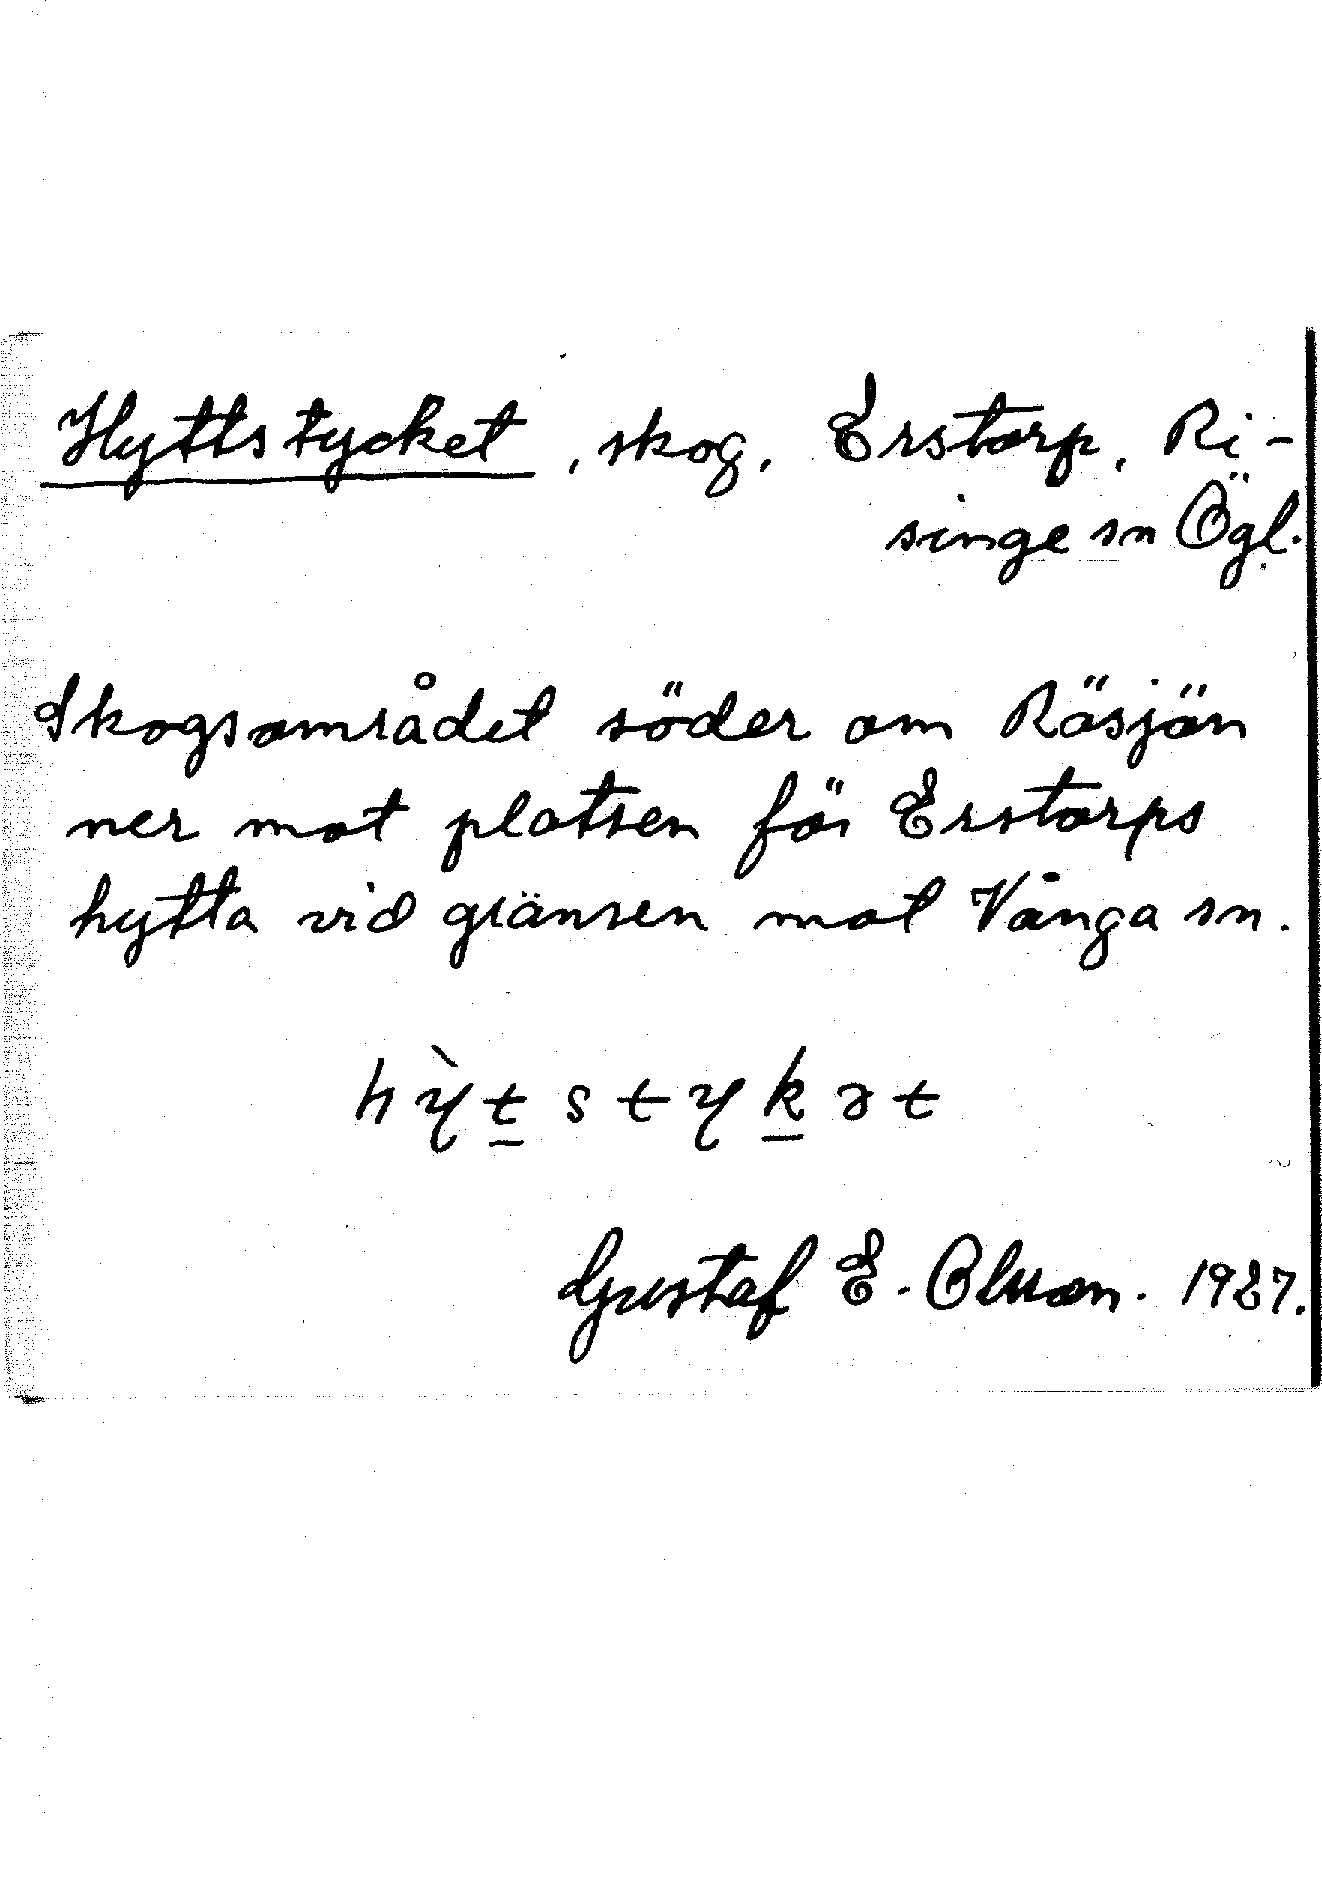 Hyttstycket, skog, Erstorp, Ri-
singe sn Ögl.
Skogsområdet söder om Räsjön
ner mot platsen för Erstorps
hytta vid gränsen mot Vånga sn.
hỳt̲styk̲ət
Gustaf E. Olsson. 1927.